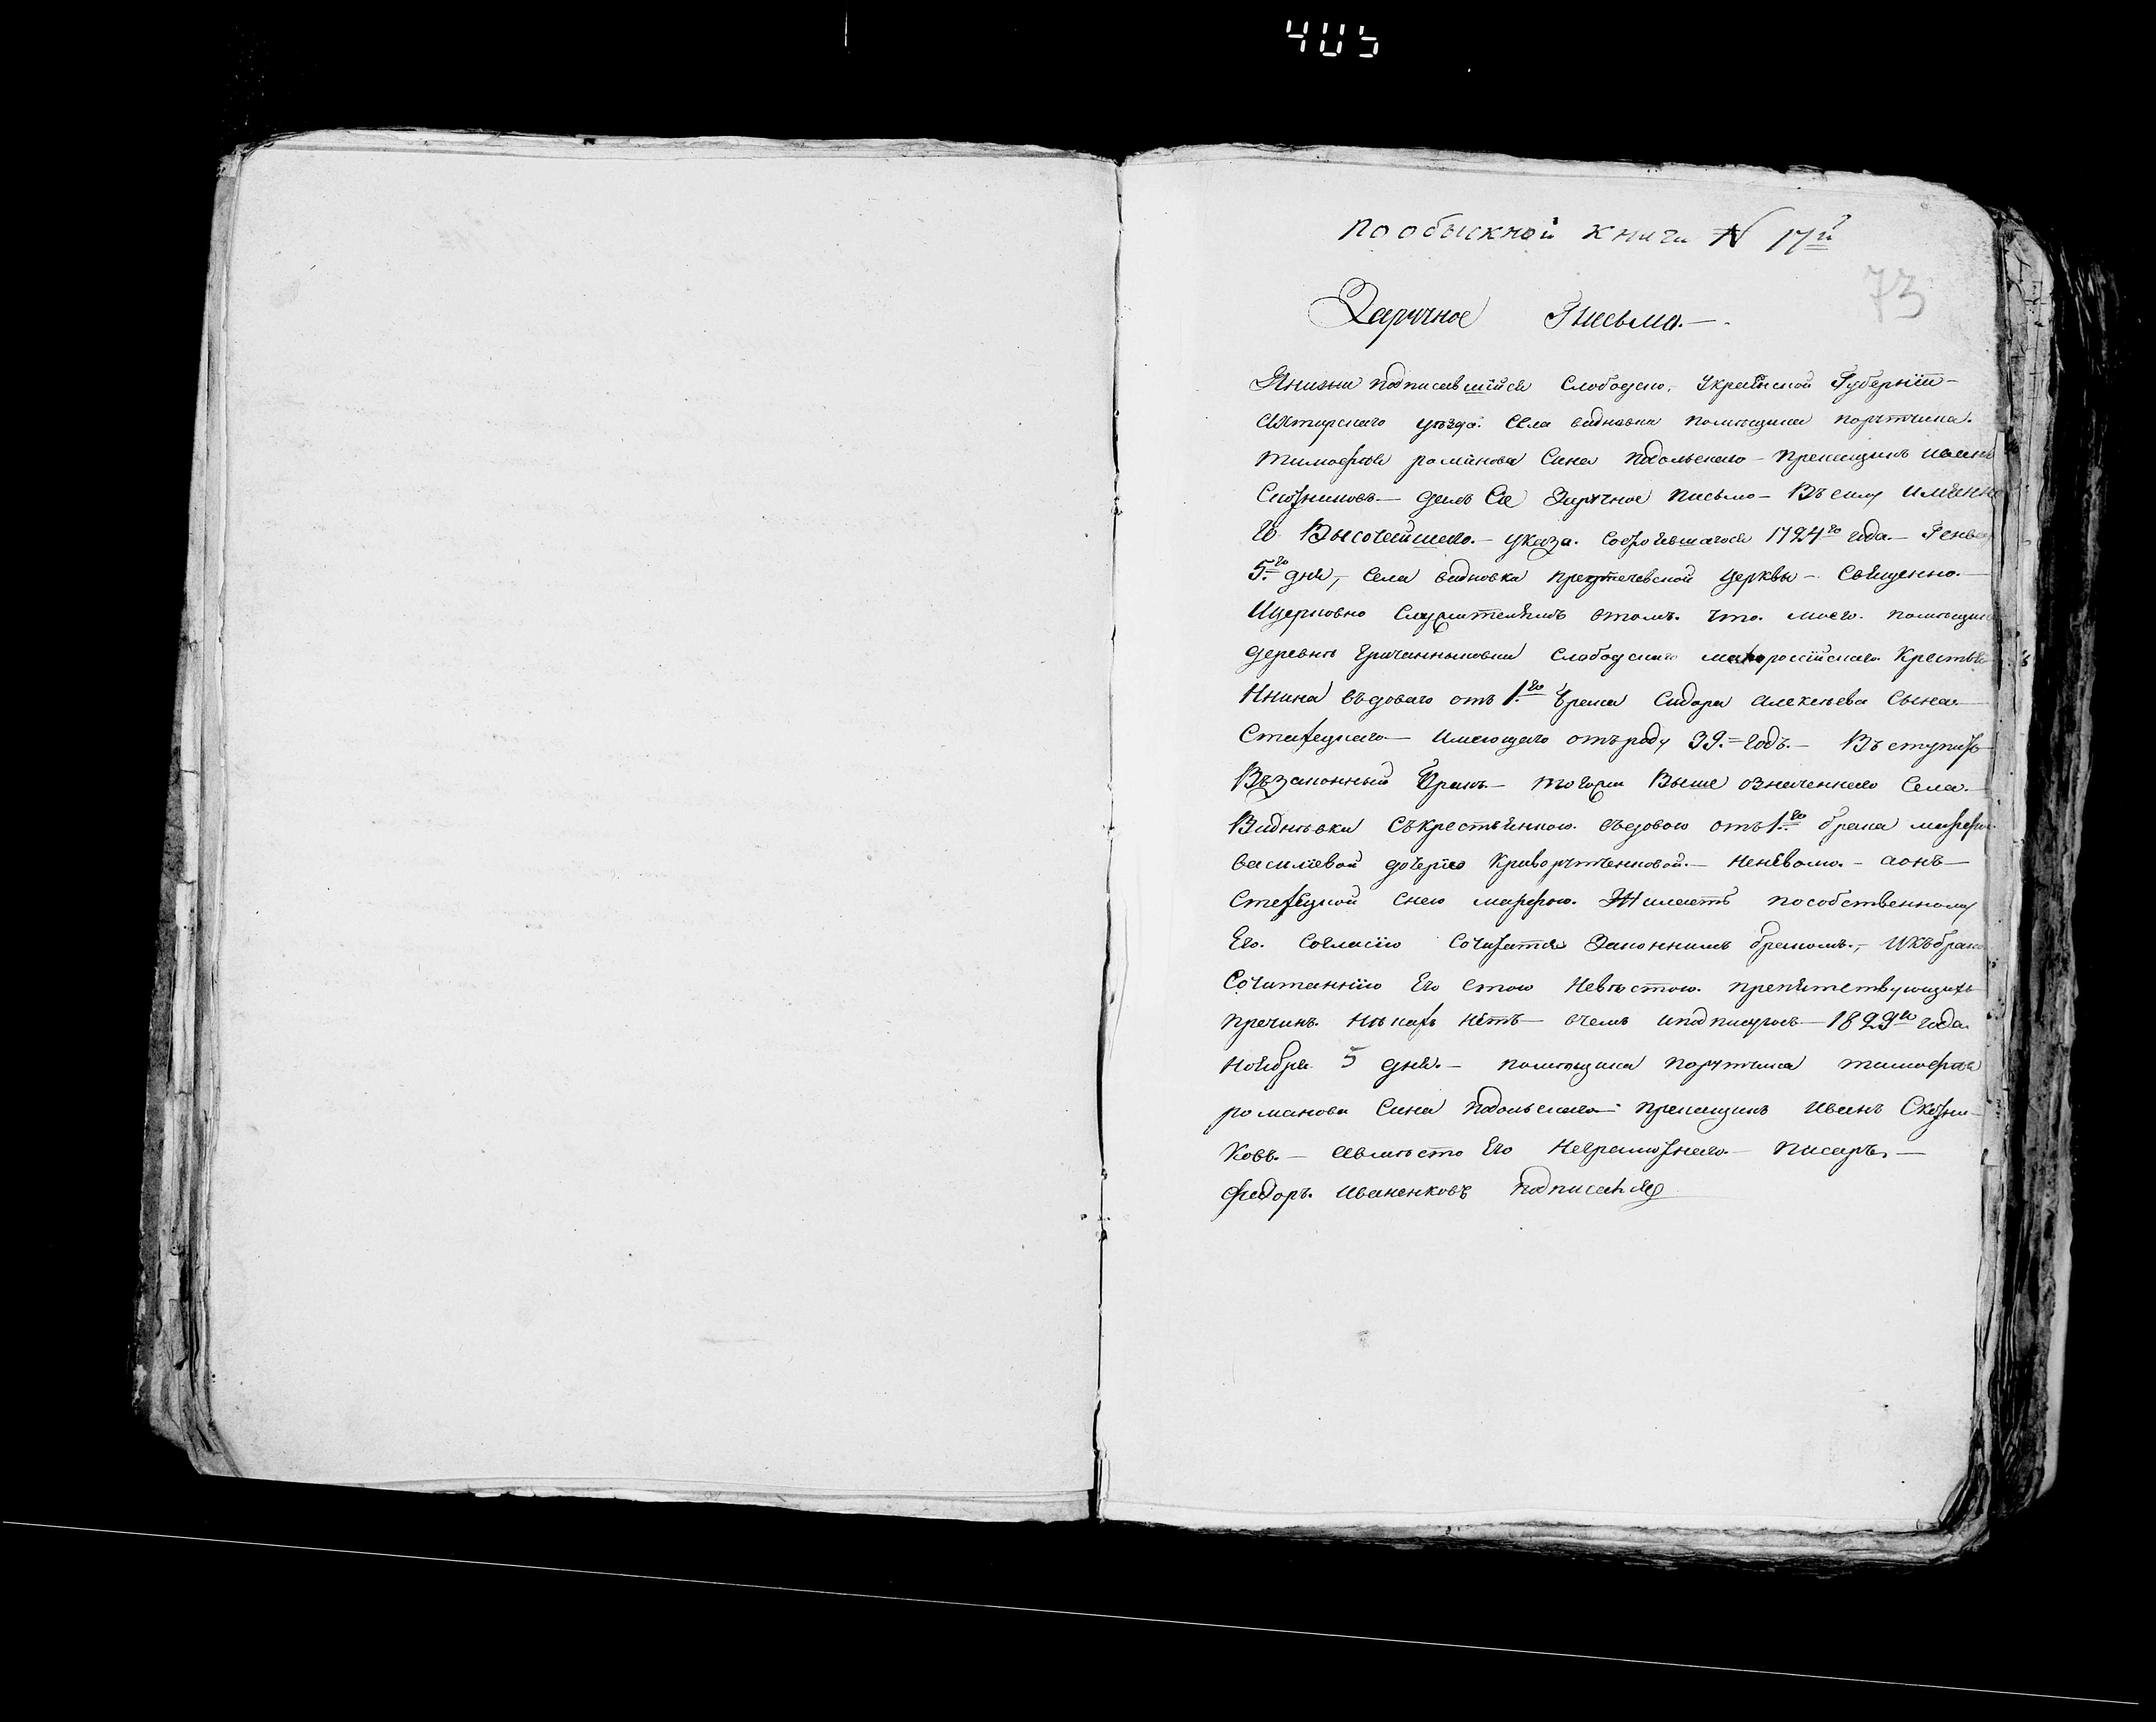 405
по обыкной книги № 17й
73
Заручное Письмо.
Я нижи подписавшійся Слободско, Украинской Губерніи
Ахтырскаго уѣзда. Села видновки помѣщика порутчика.
тимофѣя романова Сина подольскаго прикащикъ иванъ
далъ Сіе Заручное письмо Въ силу Имѣнна
го Высочайшаго. указа. Состоявшагося 1724го года. Генва
5го дня, Села видновка предтечевской церквы Свѧщенно.
Ицерковно Служителямъ отомъ. что. моего. помѣщика
деревнѣ Слободскаго малороссійскаго Крестья
Нина въдоваго отъ 1го брака Сидора алексѣева Сына
Стафецкаго Имеющаго отъ роду 39. годъ. Въступить
Въ законный бракъ тогожи Выше означеннаго Села.
Видновки Съкрестьянкою. въдовою отъ 1го брака марфою
василіевой дочерію Криворутченковой. Неневолю. аонъ
Стафецкой снею марфою. Жилаетъ пособственному
Его. Согласію Сочитатся Законнимъ бракомъ., Икъбрако
Сочитаннію Его стою Невѣстою. препятствующихъ
пречинъ. Нѣкахъ нѣтъ вчемъ иподписуюсь 1829го года
ноября 5 дня. помѣщика порутчика тимофѣя
романова Сина подольскаго прикащикъ Иванъ
ковъ. авмѣсто Его Неграмотнаго Писаръ.
федоръ. Иваненковъ подписалъся